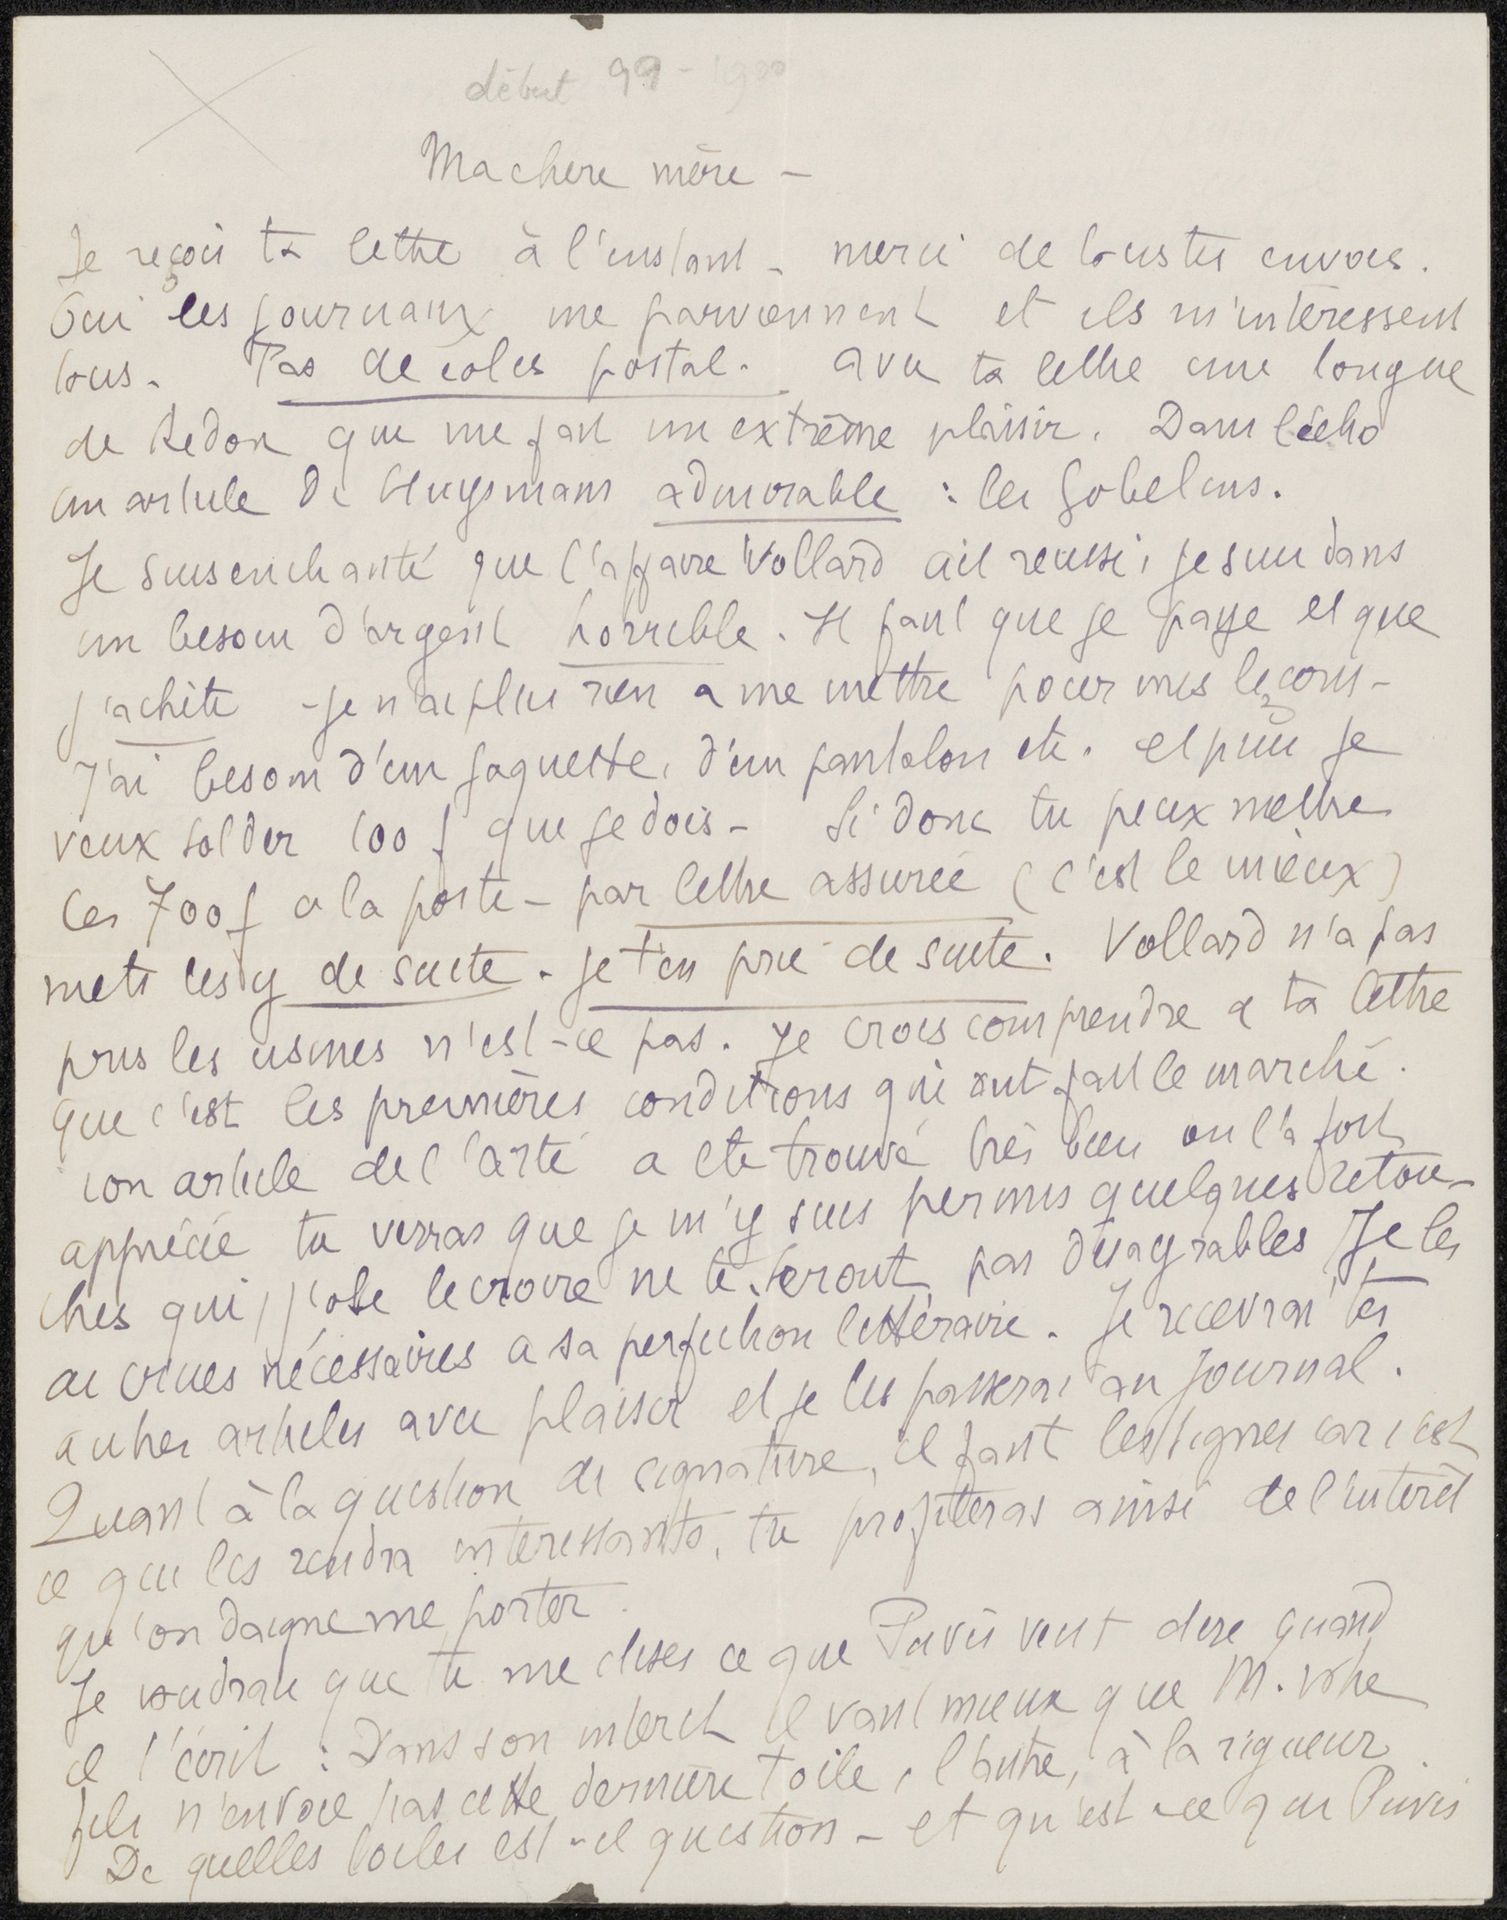 début 99 - 1900
Ma chere mère –
Je reçois ta lettre à l'instant – merci de tous tes envois.
Oui les journaux me parviennent et ils m'intéressent
tous. Pas de colis postal. avec ta lettre une longue
de Redon qui me fait un extrême plaisir. Dans l'écho
un article de Huysmans admirable : les Gobelins.
Je suis enchanté que l'affaire Vollard ait reussi, je suis dans
un besoin d'argent horrible. Il faut que je paye et que
j'achète – je n'ai plus rien a me mettre pour mes leçons –
J'ai besoin d'un jaquette, d'un pantalon etc. et puis je
veux solder 100 f que je dois – Si donc tu peux mettre
ces 700 f a la poste – par lettre assurée (c'est le mieux)
mets les y de suite. je t'en prie de suite. Vollard n'a pas
pris les usines n'est-ce pas. Je crois comprendre a ta lettre
que c'est les premières conditions qui ont fait le marché.
ton article de l'arte a ete trouvé très bien on l'a fort
apprécié tu verras que je m'y suis permis quelques retou-
ches qui, j'ose le croire ne te seront pas désagréables Je les
ai crues nécessaires a sa perfection littéraire. Je recevrai tes
autres articles avec plaisir et je les passerai au journal.
Quant à la question de signature, il faut les signer car c'est
ce qui les rendra interessants, tu profiteras ainsi de l'intérêt
qu'on daigne me porter.
Je voudrais que tu me dises ce que Puvis veut dire quand
il t'écrit : Dans son interet il vaut mieux que M. votre
fils n'envoie pas cette dernière toile, l'autre, à la rigueur
De quelles toiles est-il question – et qu'est-ce que Puvis